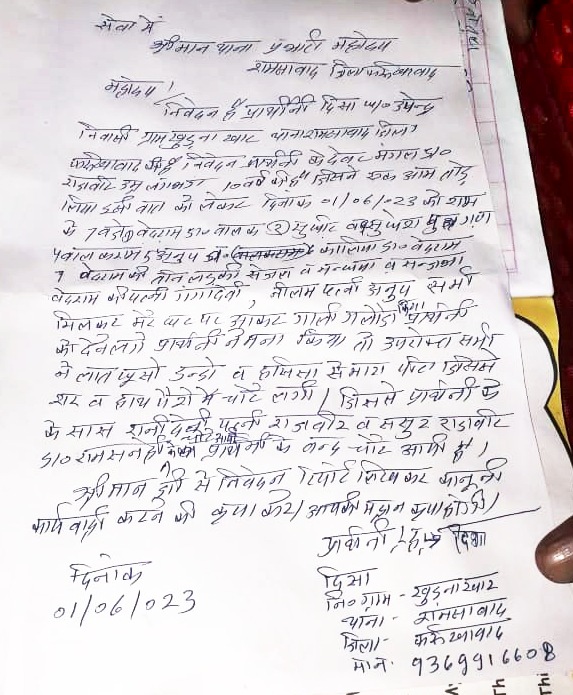 सेवा में
श्रीमान थाना प्रभारी महोदय
शमसाबाद जिला फर्रुखाबाद
महोदय!
निवेदन है प्रार्थिनी दिसा प/० उपेन्द्र
निवासी ग्राम खुड़ना खार थाना शमसाबाद जिला
फर्रुखाबाद की है निवेदन प्रार्थिनी के देवर मंगल S/०
राजवीर उम्र लगभग १० वर्ष की है जिसने एक आम तोड़
लिया इसी बात को लेकर दिनांक 01/06/023 को शाम
के 7 बजे वेदराम S/०
वेदराम की तीन लड़की संजना व
वेदराम की पत्नी गंगादेवी, नीलम पत्नी अनुप सभी
मिलकर मेरे घर पर आकर गाली गलौज किया प्रार्थिनी
को देने लगे प्रार्थिनी ने मना किया तो उपरोक्त सभी
ने लात घूसो डन्डो व हसिया से मारा पीटा जिससे
सर व हाथ पैरो में चोटे लगी। जिसमें प्रार्थिनी के
के सास रानी देवी पत्नी राजवीर व ससुर राजवीर
S/० राम सनेही प्रार्थिनी के बन्द चोट आयी है।
श्रीमान जी से निवेदन रिपोर्ट लिखकर कानूनी
कार्यवाही करने की कृपा करे। आपकी महान कृपा होगी।
प्रार्थिनी दिसा
दिनांक
01/06/023
दिसा
नि० ग्राम - खुड़ना खार
थाना - शमसाबाद
जिला - फर्रुखाबाद
मो० 9369916608